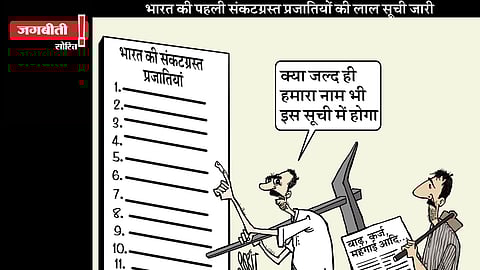 भारत की पहली संकटग्रस्त प्रजातियों की लाल सूची जारी
जगबीती
सोरित
भारत की संकटग्रस्त
प्रजातियां
1.
2.
3.
4.
5.
6.
7.
8.
9.
10.
11.
क्या जल्द ही
हमारा नाम भी
इस सूची में होगा
बाढ़, कर्ज,
महंगाई आदि..